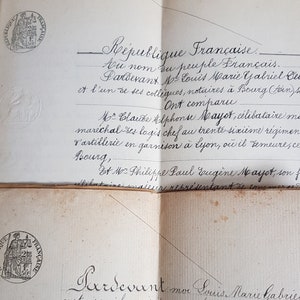 République Française.
Au nom du peuple Français.
Pardevant Me Louis Marie Gabriel
et l'un de ses collègues, notaires à Bourg (Ain),
Ont comparu
Mr Claude Alphonse Mayot, célibataire
maréchal des logis chef au trente sixième
d'artillerie en garnison à Lyon, où il demeure,
Bourg,
Et Mr Philippe Paul Eugène Mayot, son
Pardevant moi Louis Marie